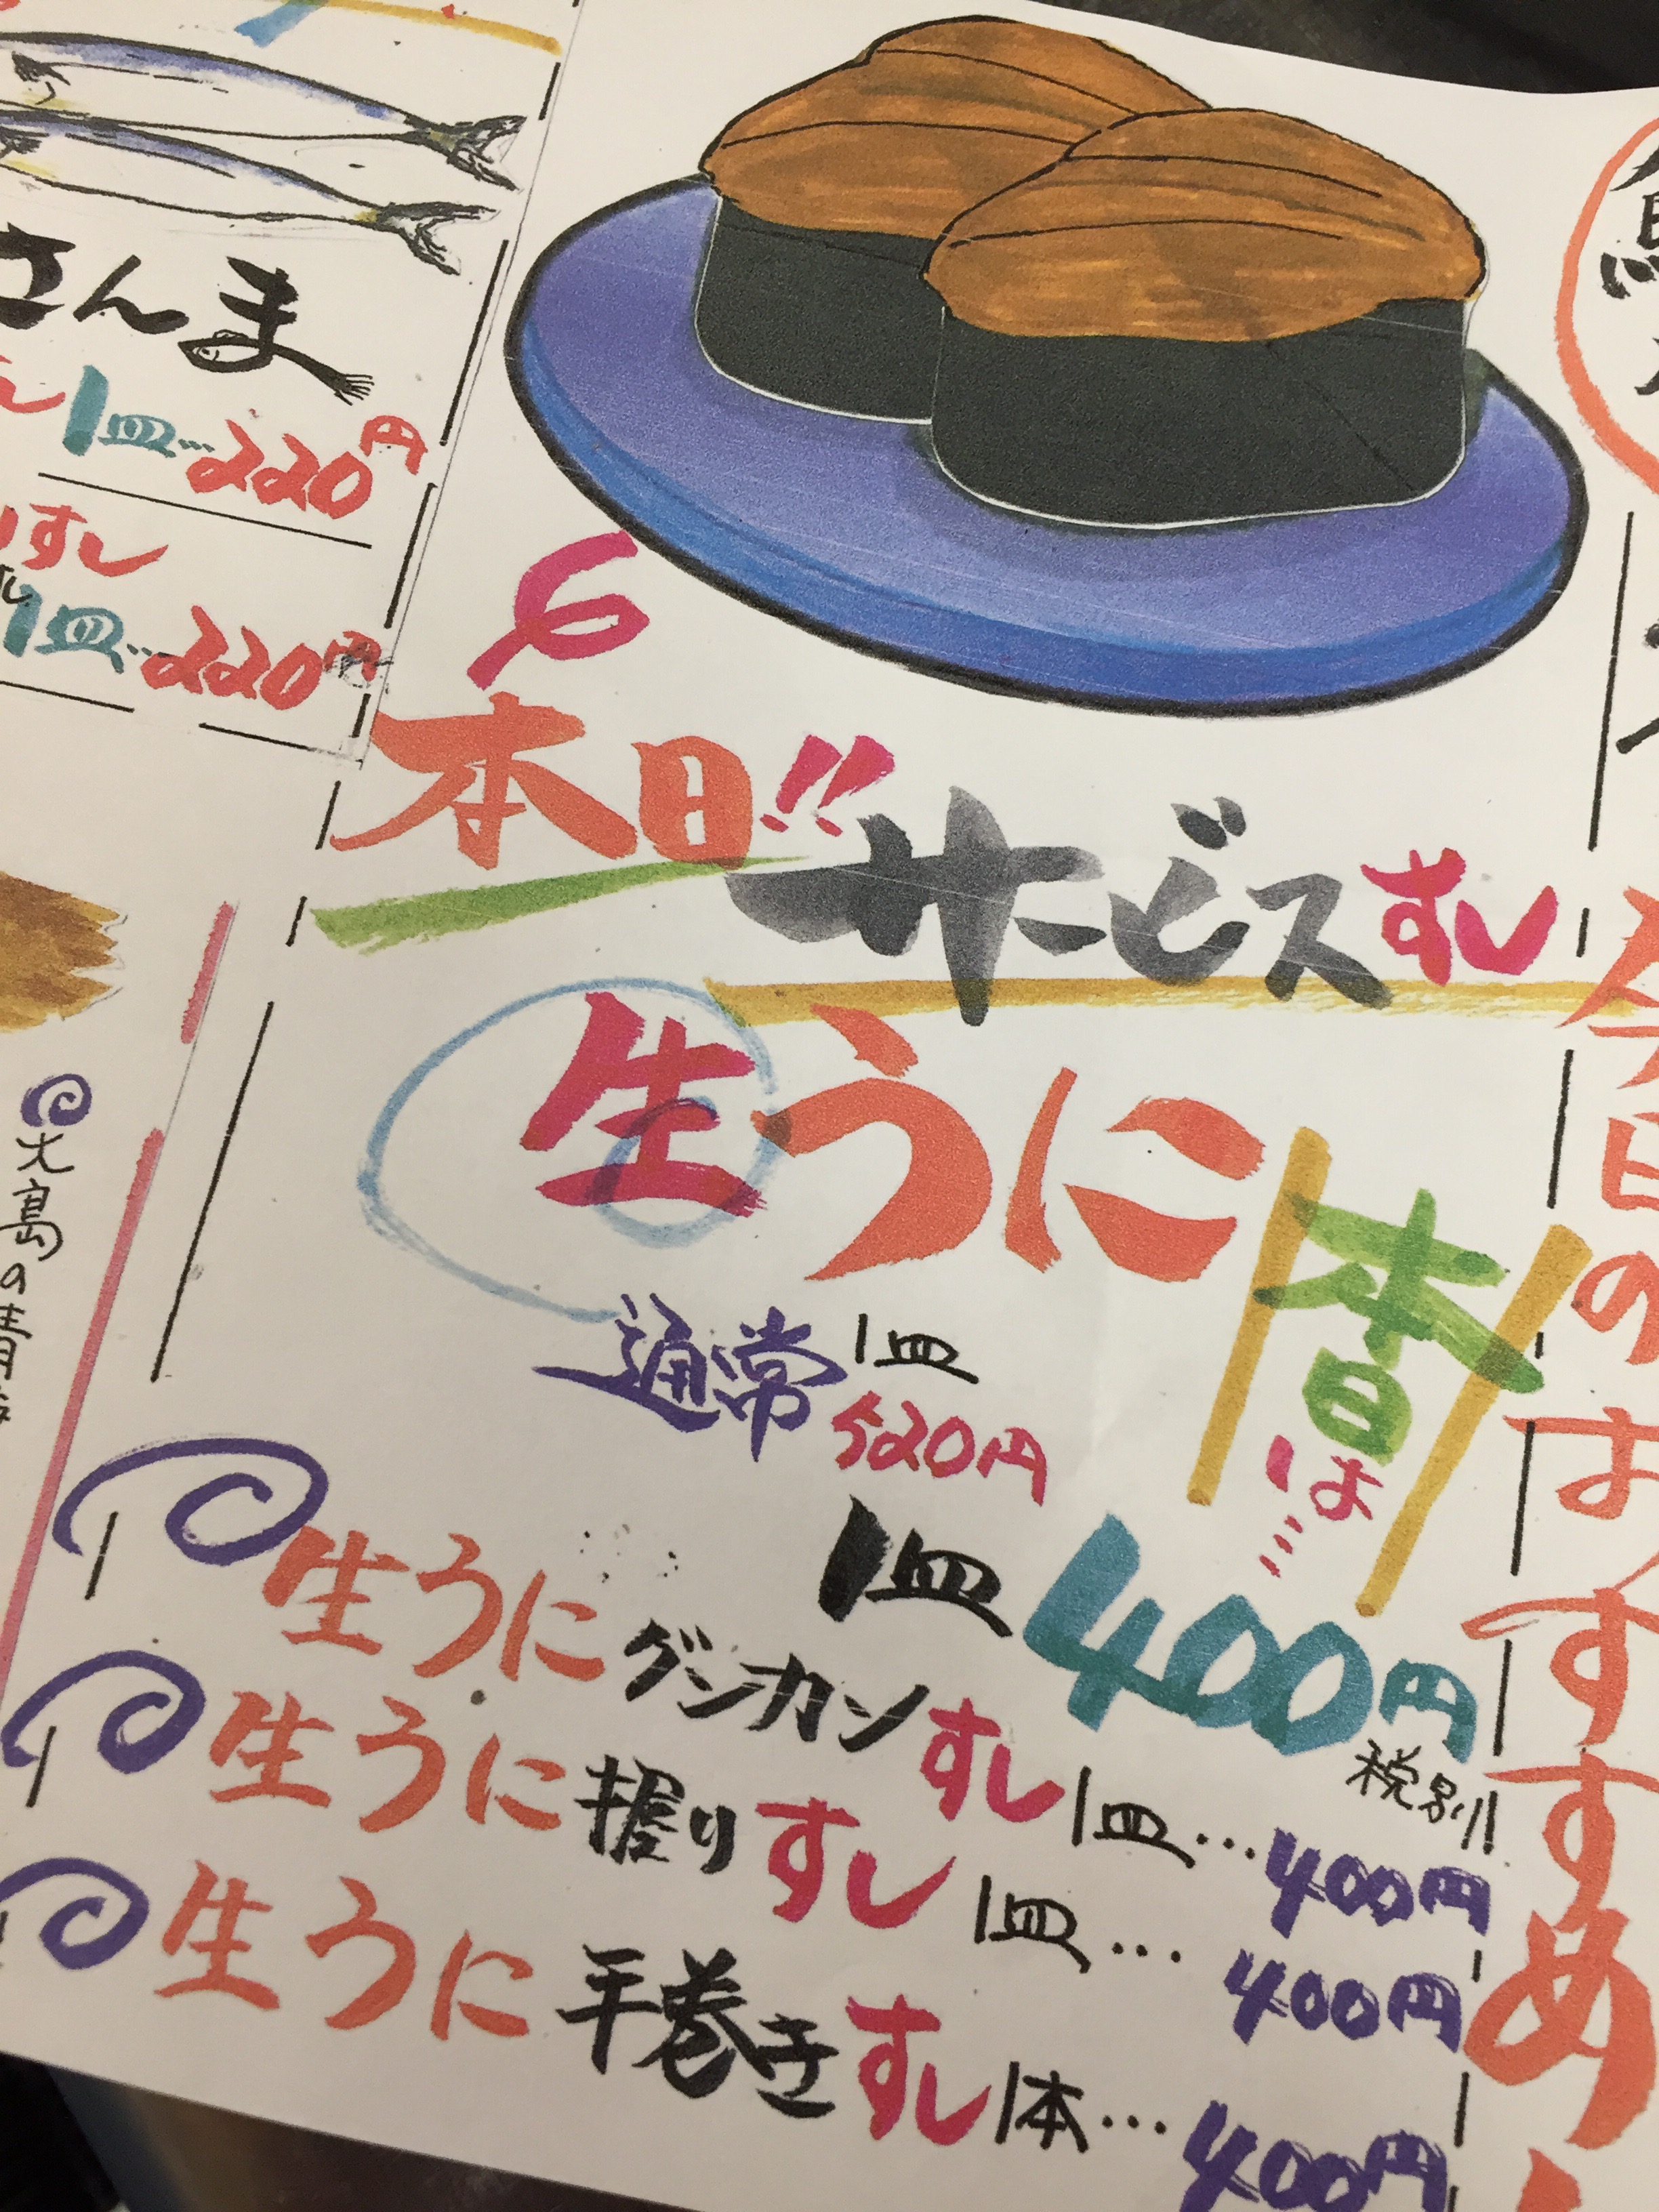 さんま
1皿…220円
すし
1皿…220円
本日!!
サービスすし
生うに
通常 1皿
520円
本日は…
1皿400円
税別
生うにグンカンすし1皿…400円
生うに握りすし1皿…400円
生うに手巻きすし1本…400円
今日のおすすめ
大島の青